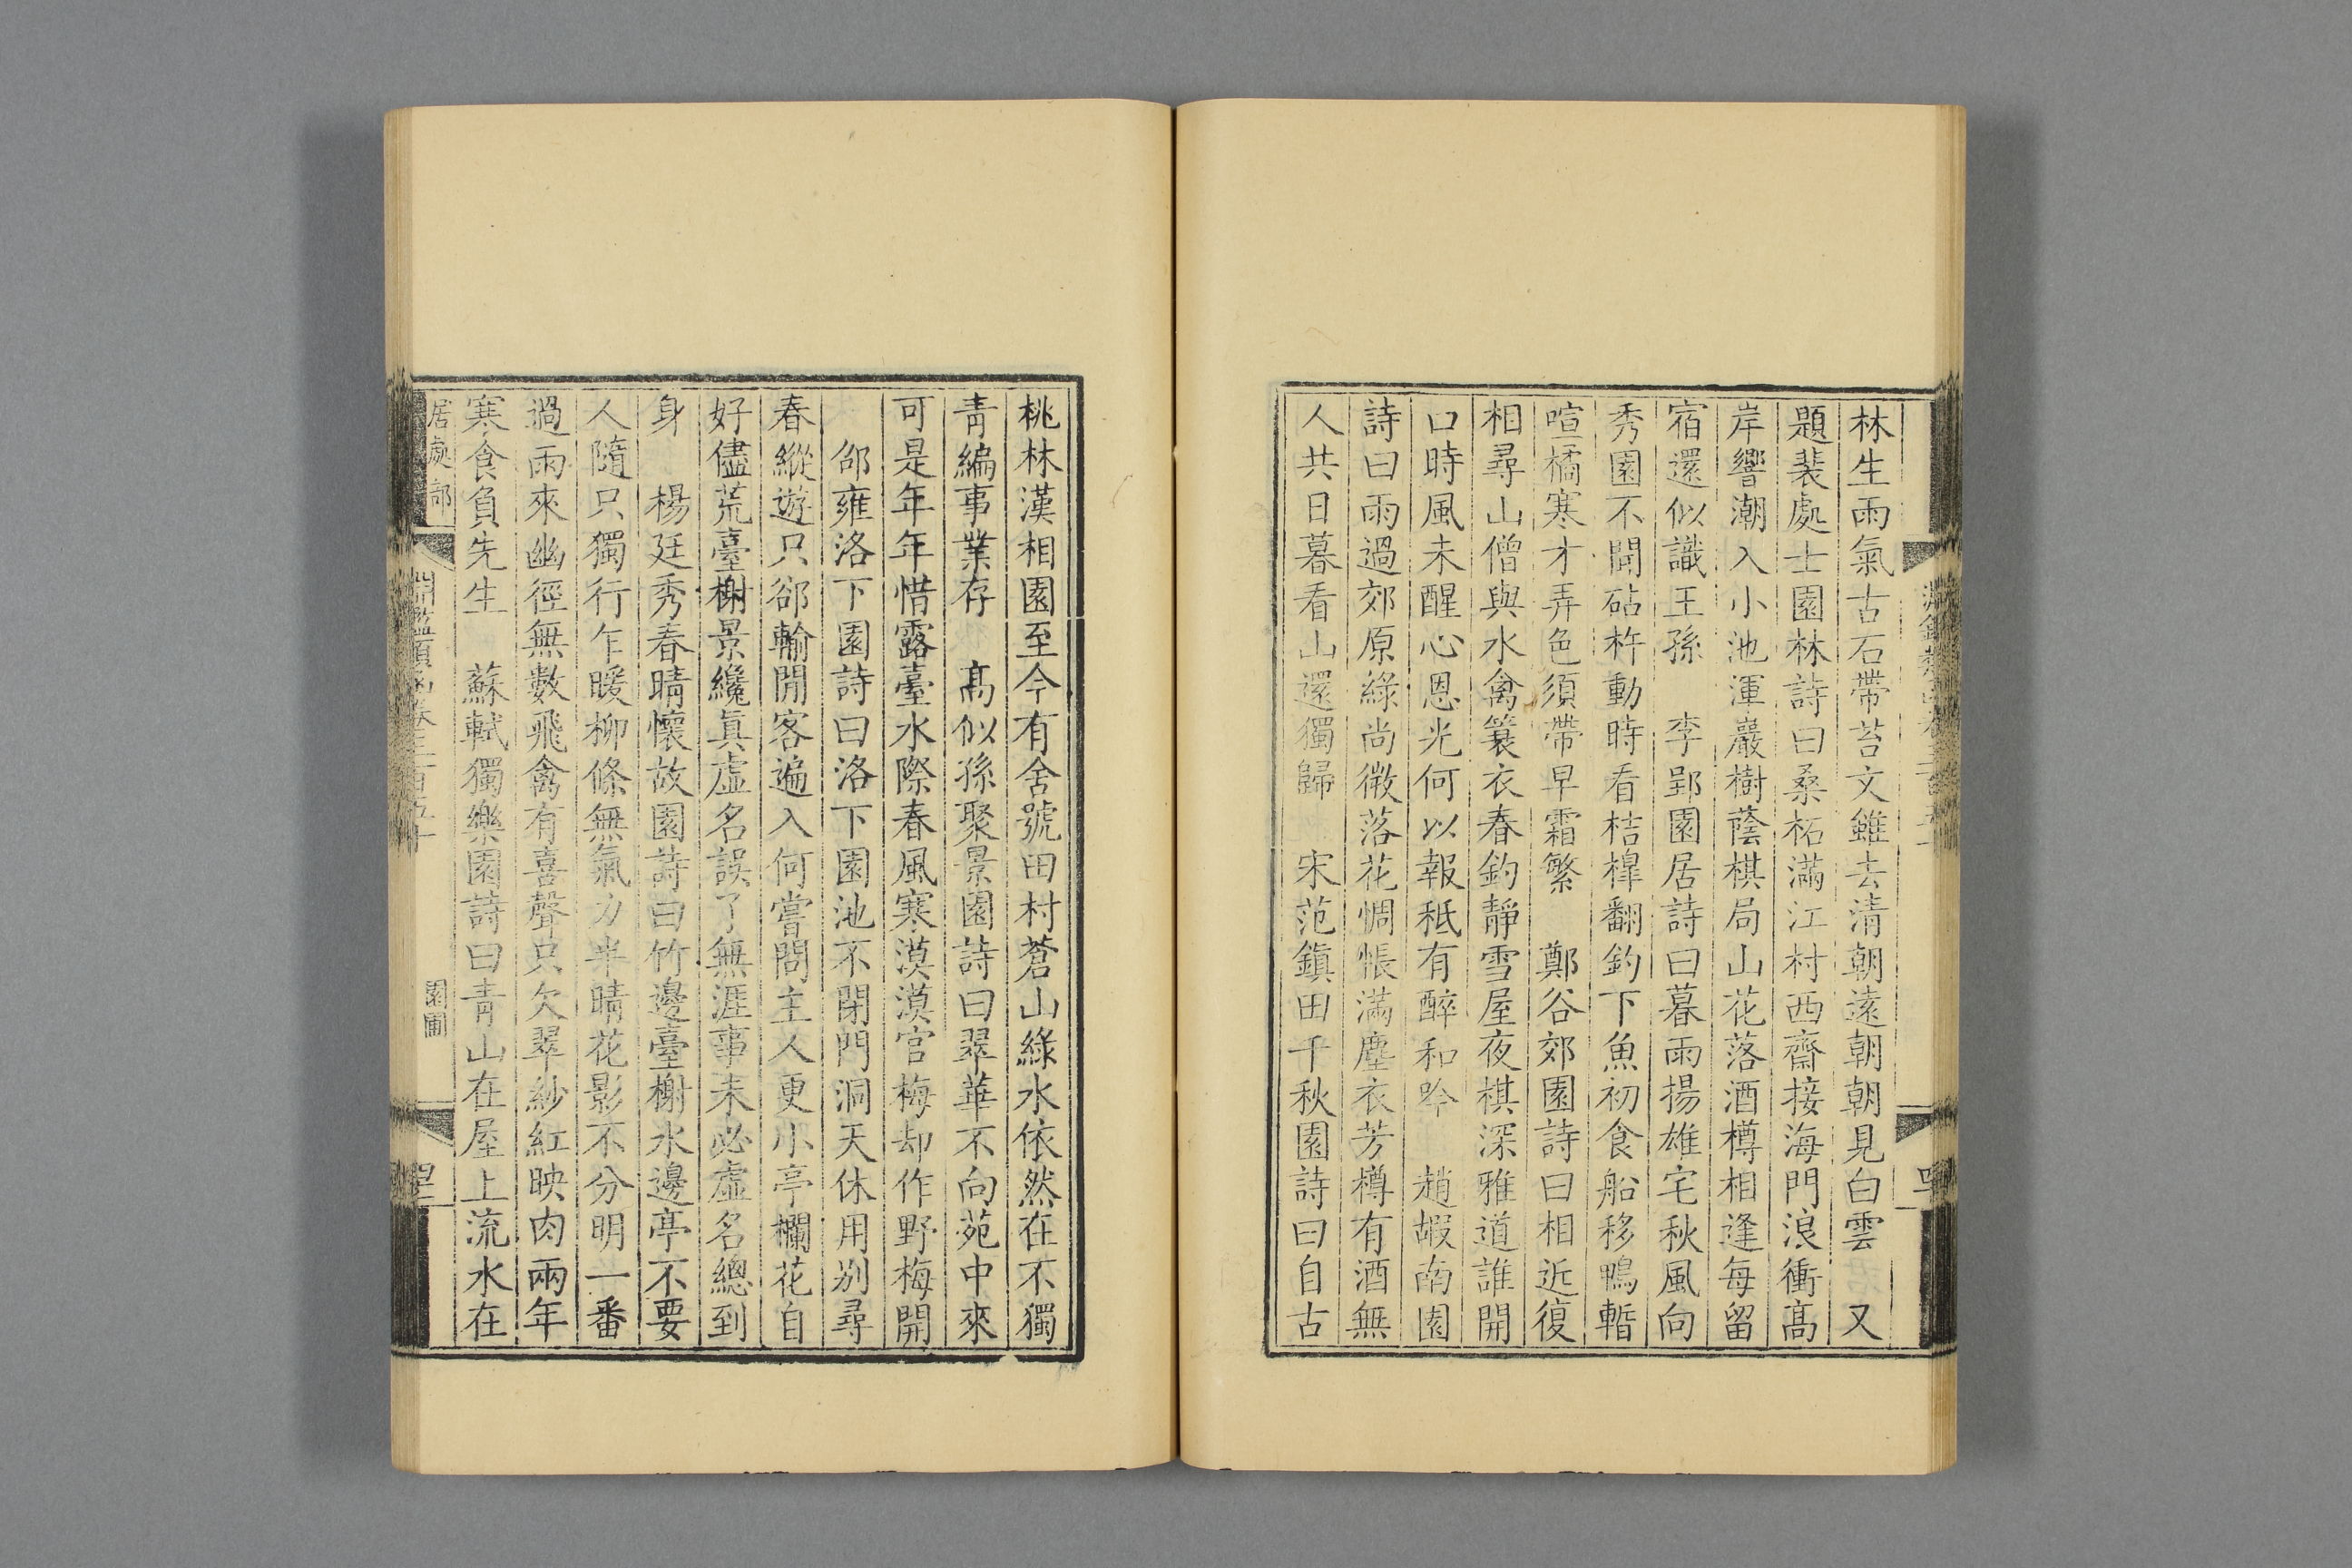 林生雨氣古石帶苔文雖去清朝遠朝朝見白雲　又
題裴處士園林詩曰桑柘滿江村西齋接海門浪衝髙
岸響潮入小池渾巖樹蔭棋局山花落酒樽相逢每留
宿還似識王孫　李郢園居詩曰暮雨揚雄宅秋風向
秀園不聞砧杵動時看桔橰翻釣下魚初食船移鴨暫
喧橘寒才弄色須帶早霜繁　鄭谷郊園詩曰相近復
相尋山僧與水禽簑衣春釣靜雪屋夜棋深雅道誰開
口時風未醒心恩光何以報秪有醉和吟　趙嘏南園
詩曰雨過郊原綠尚微落花惆悵滿塵衣芳樽有酒無
人共日暮看山還獨歸　宋范鎭田千秋園詩曰自古
桃林漢相園至今有舍號田村蒼山綠水依然在不獨
青編事業存　髙似孫聚景園詩曰翠華不向苑中來
可是年年惜露臺水際春風寒漠漠官梅却作野梅開
邵雍洛下園詩曰洛下園池不閉門洞天休用别尋
春縱遊只郤輸閒客遍入何嘗問主人更小亭欄花自
好儘荒臺榭景纔眞虛名誤了無涯事未必虛名總到
身　楊廷秀春晴懷故園詩曰竹邊臺榭水邊亭不要
人隨只獨行乍暖柳條無氣力半晴花影不分明一番
過雨來幽徑無數飛禽有喜聲只欠翠紗紅映肉兩年
寒食負先生　蘇軾獨樂園詩曰青山在屋上流水在
居處部
淵鑑類函卷三百五十
園圃